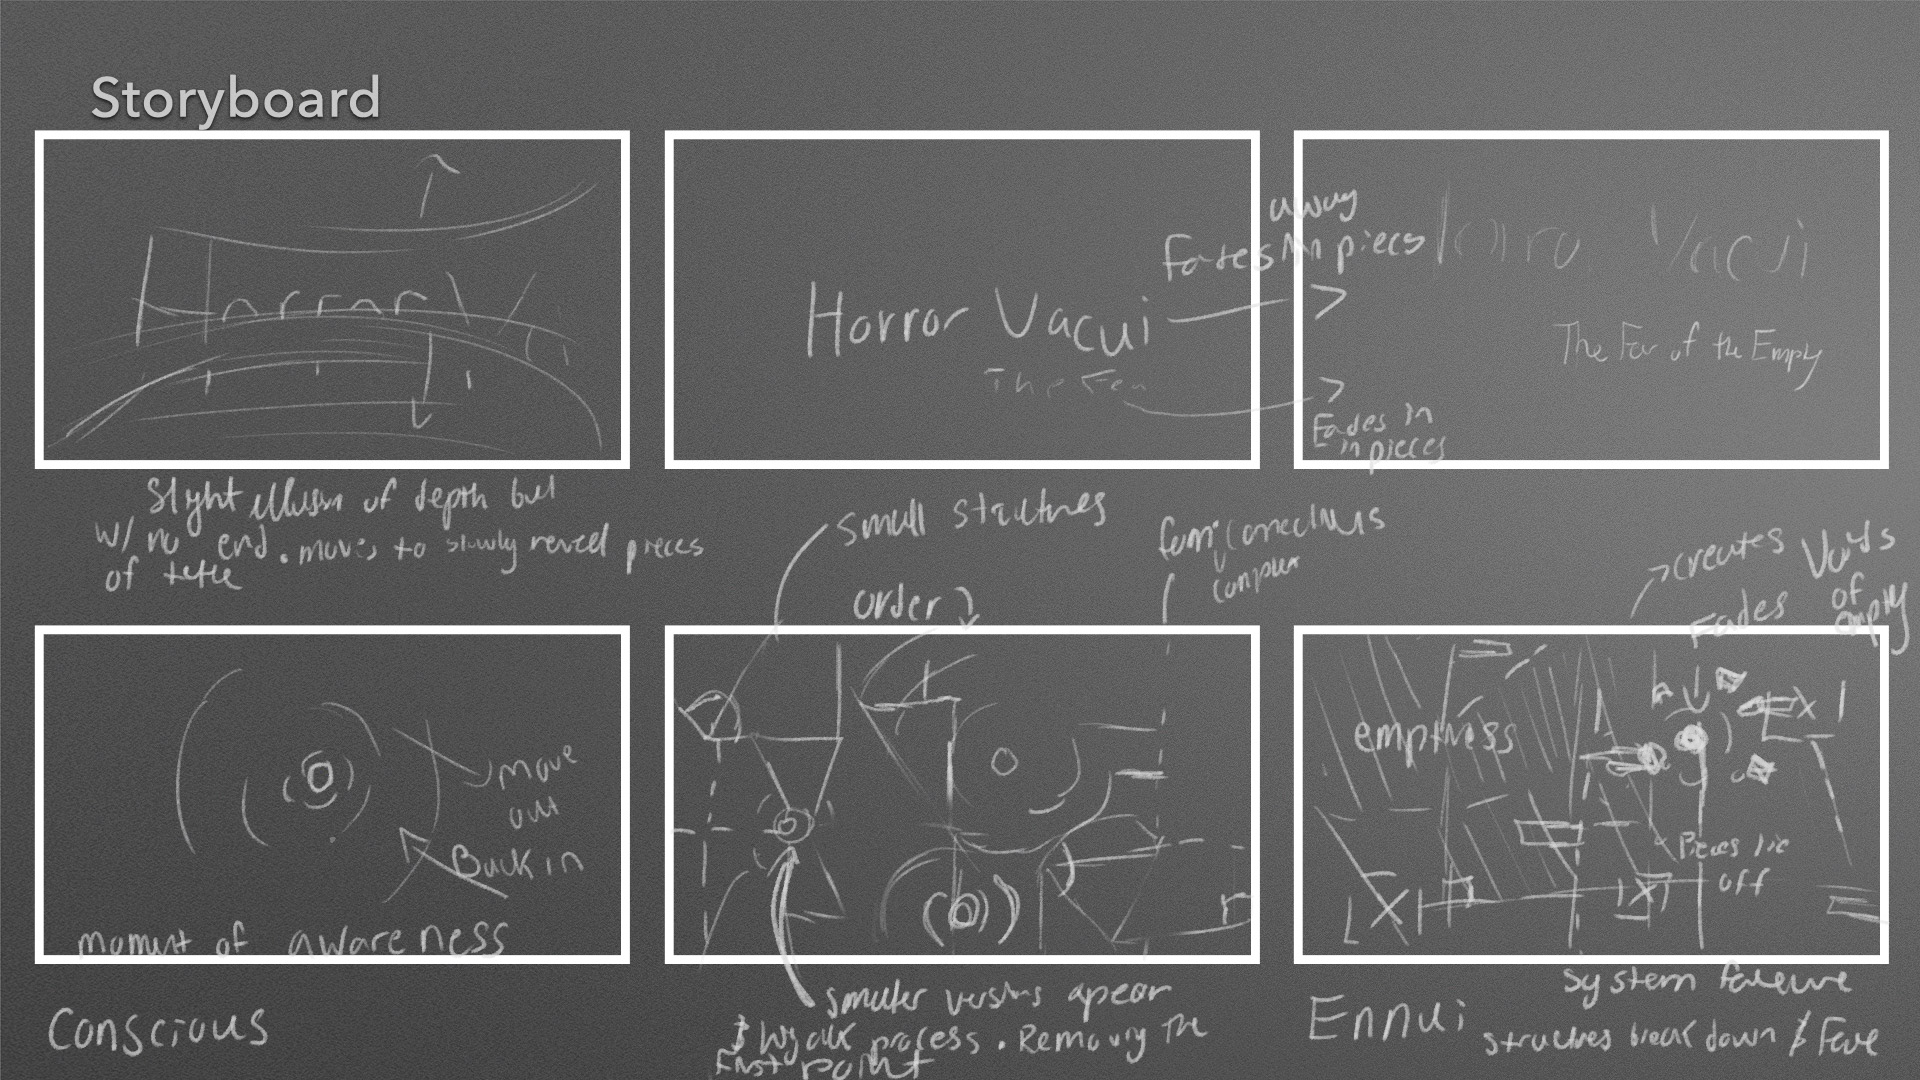 Storyboard
Horror V
Slight illusion of depth but
w/ no end. moves to slowly reveal pieces
of title
Horror Vacui
The Fea
away
Fades in pieces
Vacui
The Fear of the Empty
Fades in
in pieces
move
out
Back in
moment of awareness
Conscious
small structures
order
complex
smaller versions apear
process. Removing the
First point
creates Voids
of
empty
Fades
emptness
Pieces
off
Ennui
system faleure
structures break down & Fade